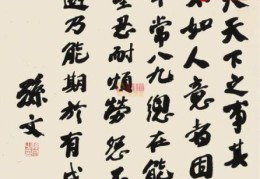 夫天下之事其
不如人意者固
十常八九總在能
堅忍耐煩勞怨不
避乃能期於有成
孫文